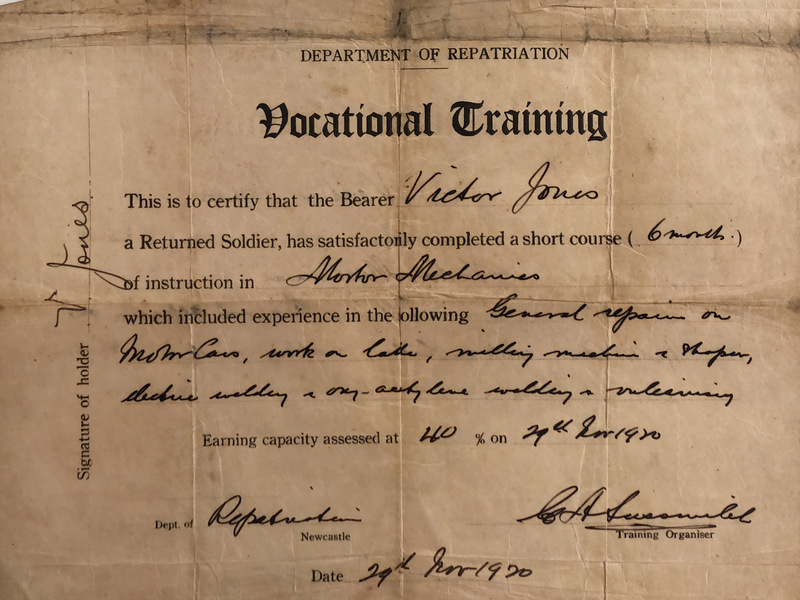 DEPARTMENT OF REPATRIATION
Vocational Training
This is to certify that the Bearer Victor Jones
a Returned Soldier, has satisfactorily completed a short course ( 6 months. )
of instruction in Mortor Mechanics
which included experience in the ollowing General repairs on
Motor Cars, work on lathe, milling machine & Shaper,
electric welding & oxy-acetylene welding & vulcanising
Earning capacity assessed at 40 % on 29th Nov 1920
Dept. of Repatriation
Newcastle
Training Organiser
Date 29th Nov 1920
Signature of holder V Jones